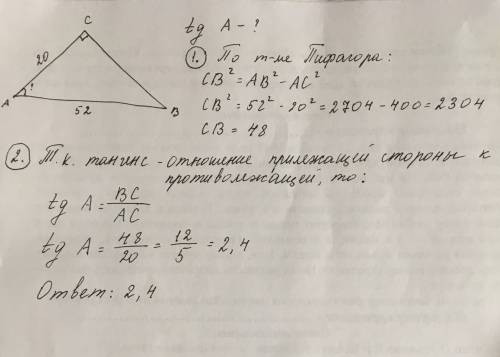 C
20
A
?
52
B
tg A - ?
1. По т-ме Пифагора:
CB² = AB² - AC²
CB² = 52² - 20² = 2704 - 400 = 2304
CB = 48
2. Т.к. тангенс - отношение прилежащей стороны к
противолежащей, то:
tg A = BC/AC
tg A = 48/20 = 12/5 = 2,4
Ответ: 2,4